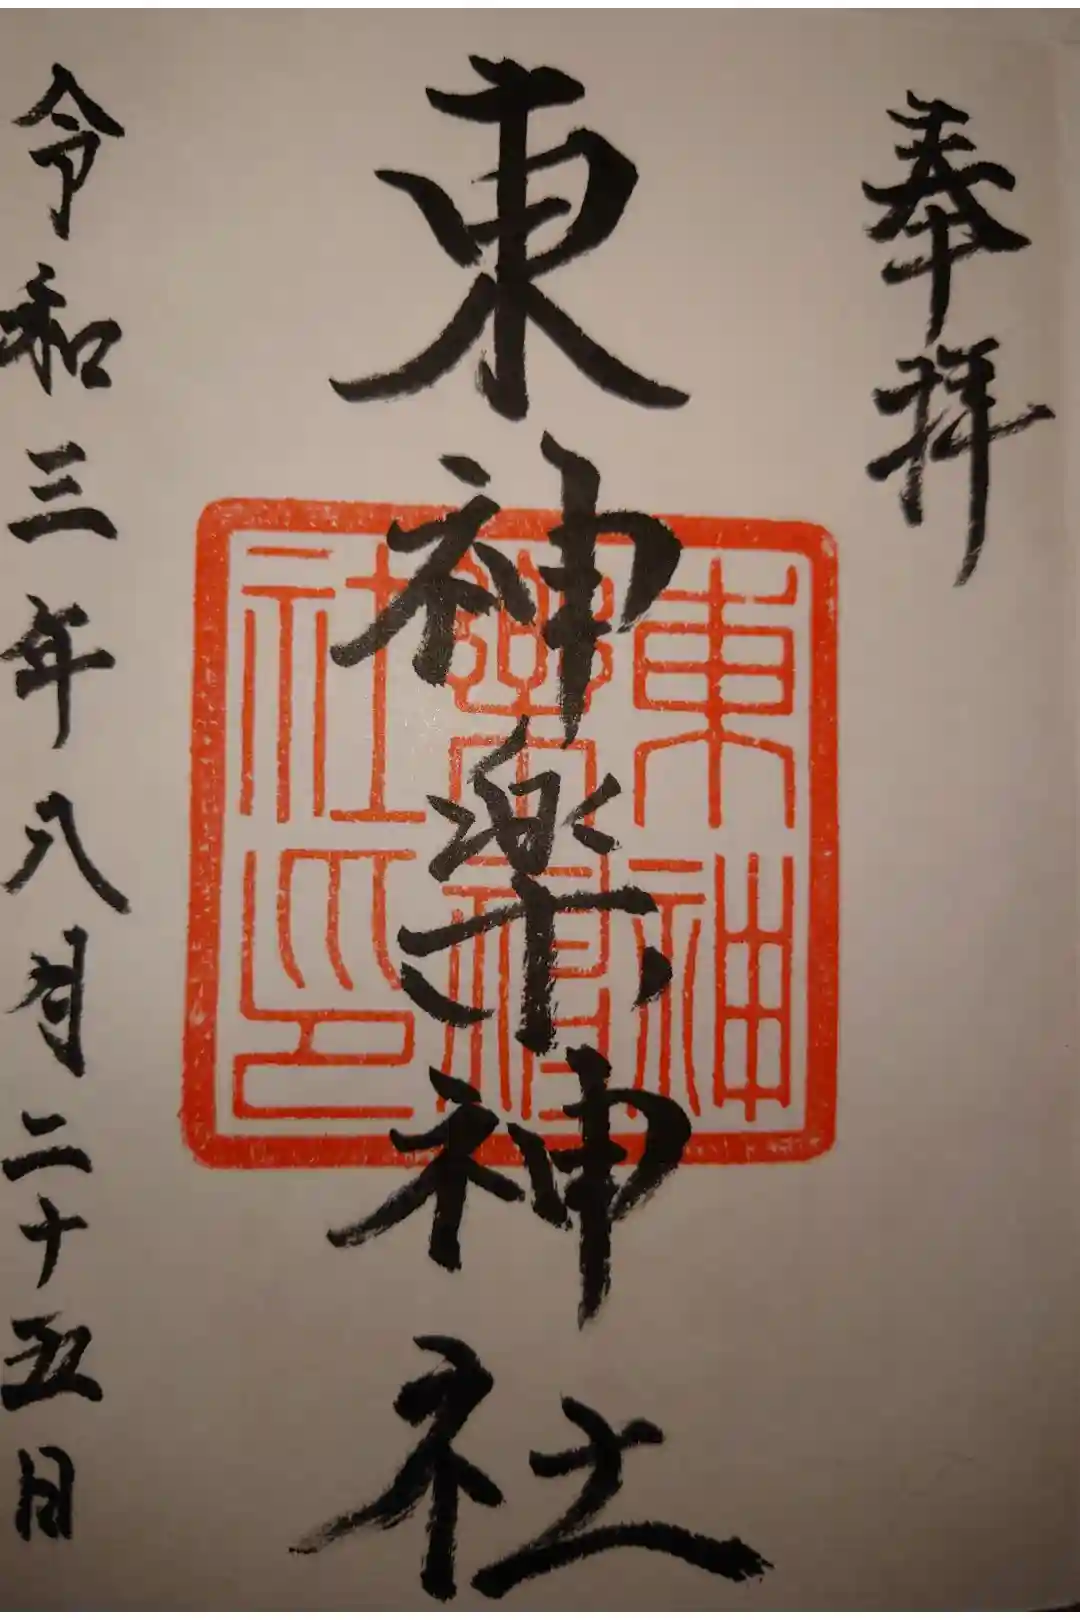 奉拝
東神楽神社
東神樂神社印
令和三年八月二十五日